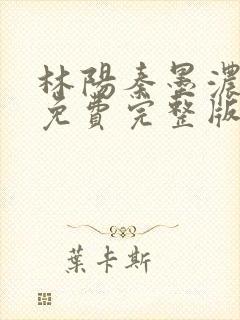 林陽秦墨濃
免費完整版
葉卡斯